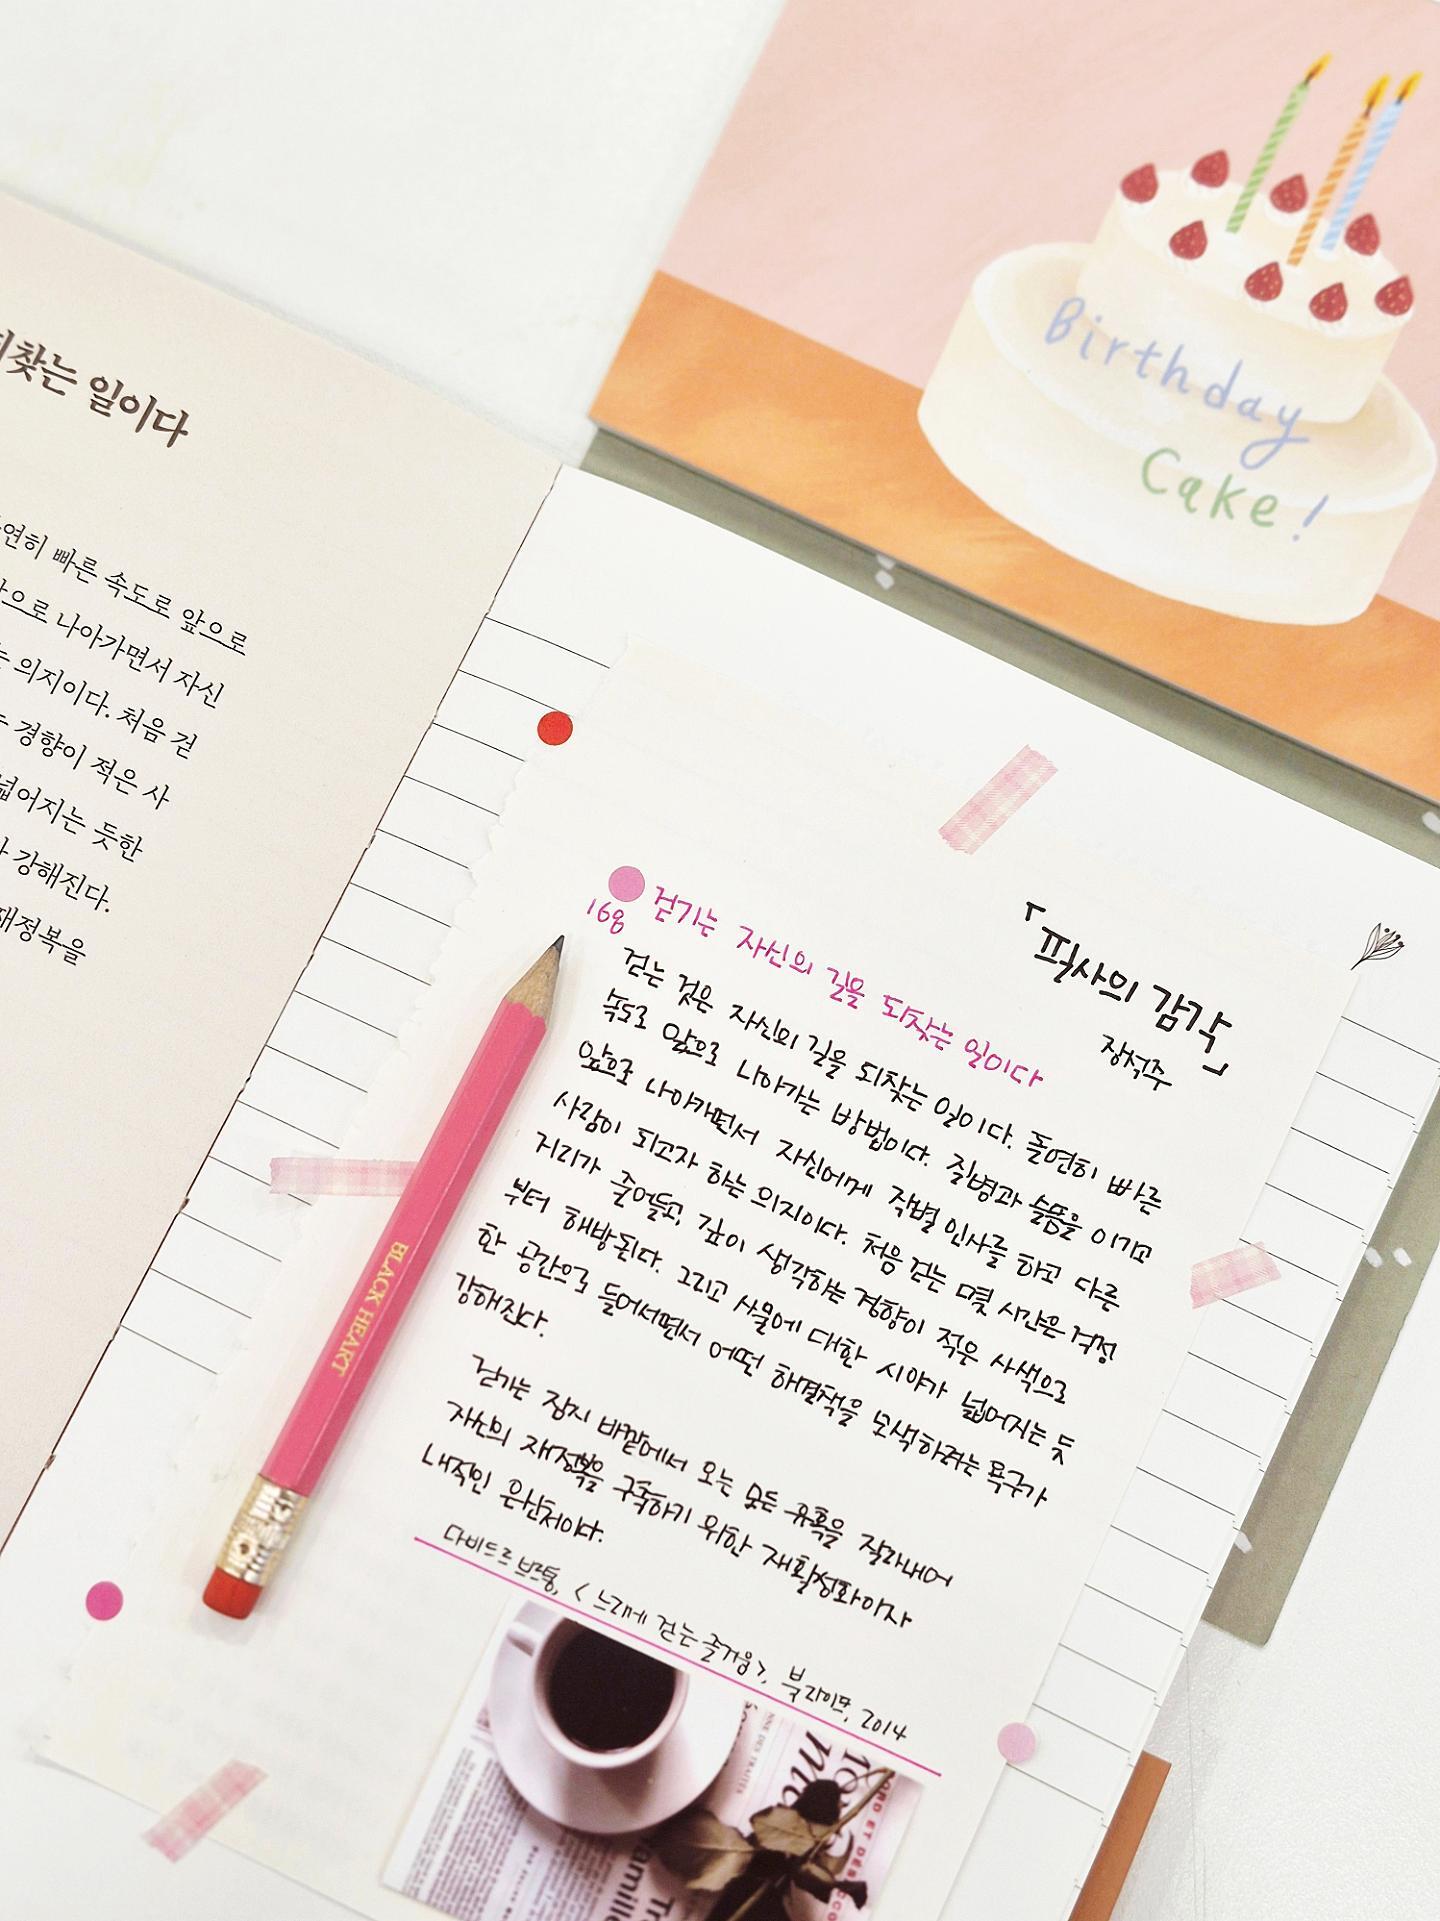 Birthday
Cake!
되찾는 일이다
연히 빠른 속도로 앞으로
으로 나아가면서 자신
의지이다. 처음 걷
경향이 적은 사
넓어지는 듯한
강해진다.
재정복을
『필사의 감각』
장석주
168
걷기는 자신의 길을 되찾는 일이다
걷는 것은 자신의 길을 되찾는 일이다. 돌연히 빠른
속도로 앞으로 나아가는 방법이다. 질병과 슬픔을 이기고
앞으로 나아가면서 자신에게 작별 인사를 하고 다른
사람이 되고자 하는 의지이다. 처음 걷는 몇 시간은 걱정
거리가 줄어들고, 깊이 생각하는 경향이 적은 사색으로
부터 해방된다. 그리고 사물에 대한 시야가 넓어지는 듯
한 공간으로 들어서면서 어떤 해결책을 모색하려는 욕구가
강해진다.
걷기는 잠시 바깥에서 오는 모든 유혹을 잘라내어
자신의 재정복을 구축하기 위한 재활성화이자
내적인 은신처이다.
다비드 르 브르통, <느리게 걷는 즐거움>, 북라이프, 2014
BLACK HEART